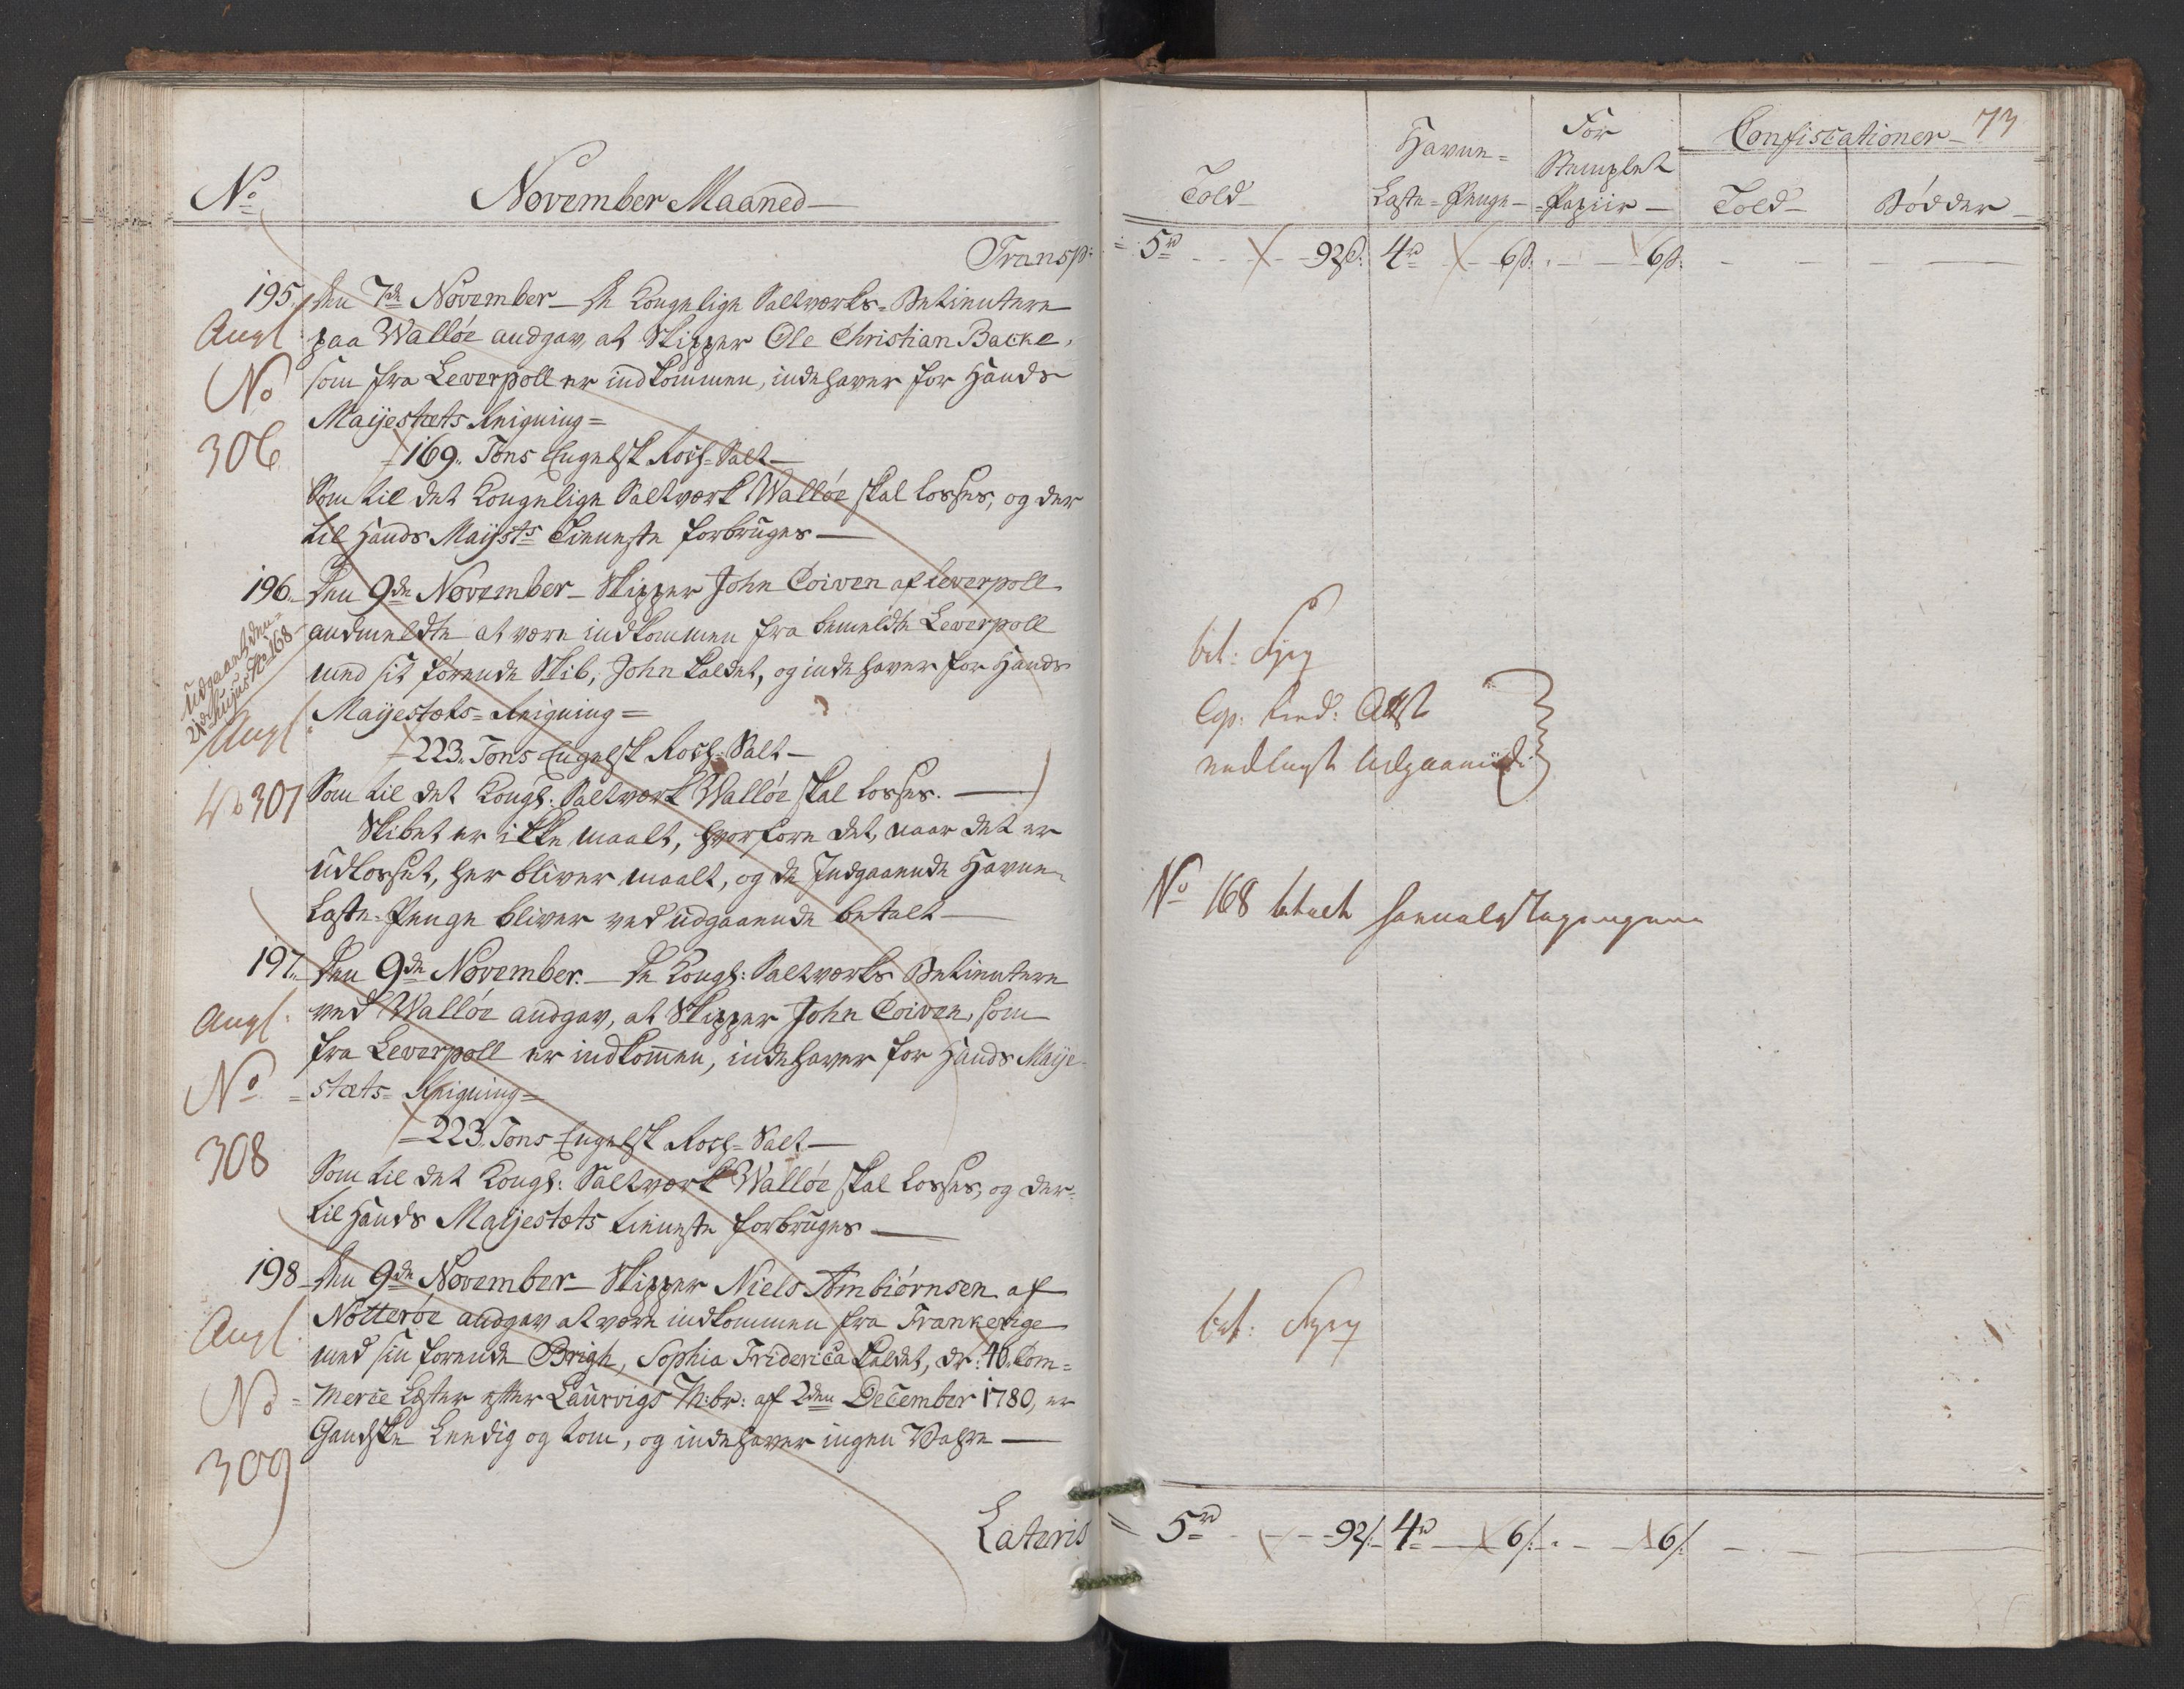 No
November Maaned
Transp:
195. Den 7de November - De Kongelige Saltværks-Betientere
Angl paa Walløe andgav, at Skipper Ole Christian Backe,
No som fra Leverpoll er indkommen, indehaver for Hands
Maijestæts Reigning =
306
169. Tons Engelsk Roch-Salt
Som til det Kongelige Saltværk Walløe skal losses, og der
til Hands Maijsts Tieneste forbruges
196. Den 9de November - Skipper John Coiven af Leverpoll
andmeldte at være indkommen fra bemeldte Leverpoll
Udgaaet den
Vide hujus No 168
med sit førende Skib, John kaldet, og indehaver for Hands
Angl Maijestæts-Reigning =
223. Tons Engelsk Roch-Salt
No 307 Som til det Kongl: Saltværk Walløe skal losses.
Skibet er ikke maalt, hvorfore det, naar det er
udlosset, her bliver maalt, og de Indgaaende Havne-
Laste-Penge bliver ved udgaaende betalt
197. Den 9de November. - De Kongl: Saltværks Betientere
Angl: ved Walløe andgav, at Skipper John Coiven, som
fra Leverpoll er indkomen, indehaver for Hands Maije-
No = stæts-Reigning =
223. Tons Engelsk Roch-Salt
308
Som til det Kongl: Saltværk Walløe skal losses, og der-
til Hands Maijestæts tieneste forbruges
198 Den 9de November - Skipper Niels Ambiørnsen af
Angl. Nøtterøe andgav at være indkommen fra Frankerige
med sin førende Brigh, Sophia Friderica kaldet, dr: 46. Com=
No = merce Læster efter Laurvigs M:br: af 2den December 1780, er
Gandske Leedig og tom, og indehaver ingen Wahre
309
Lateris
73
Told
Havne=
Laste-Penge
For
Stemplet
Papiir
Confiscationer
Told
Bødder
5rd 92s. 4rd 6s. 6s.
bet:
nedlagt Udgaaende
No 168 betalt
bet:
5rd 92s. 4rd 6s. 6s.